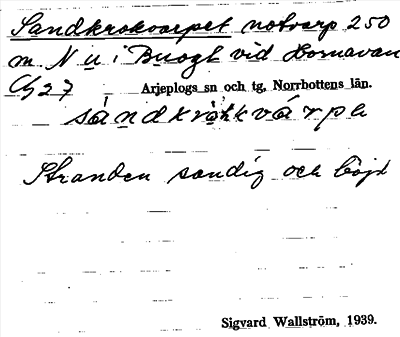 Sandkrokvarpet notvarp 250
m. N u i Buogt vid Hornavan
27 Arjeplogs sn och tg, Norrbottens län.
sándkrɷkvárph
Stranden sandig och böjd
Sigvard Wallström, 1939.